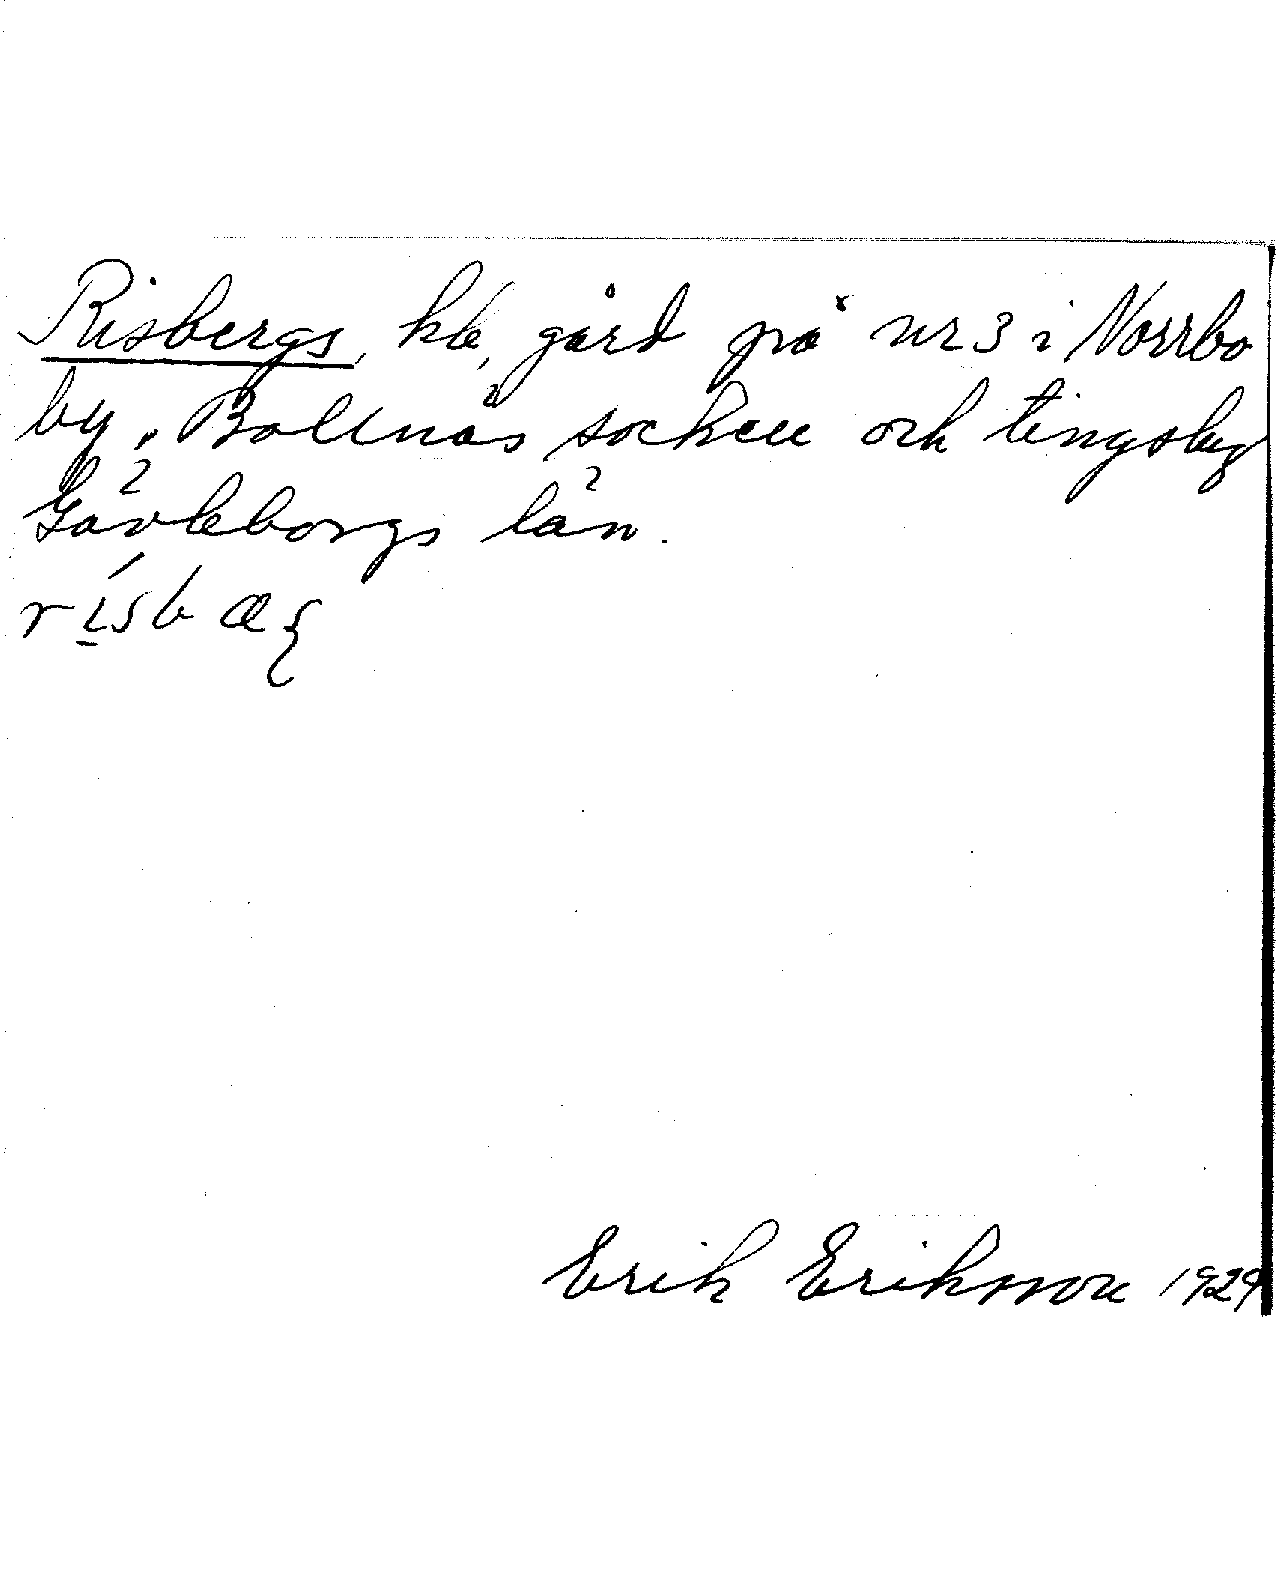 Risbergs, kb, gård på nr 3 i Norrbo
by, Bollnäs socken och tingslag
Gävleborgs län.
Erik Eriksson 1929